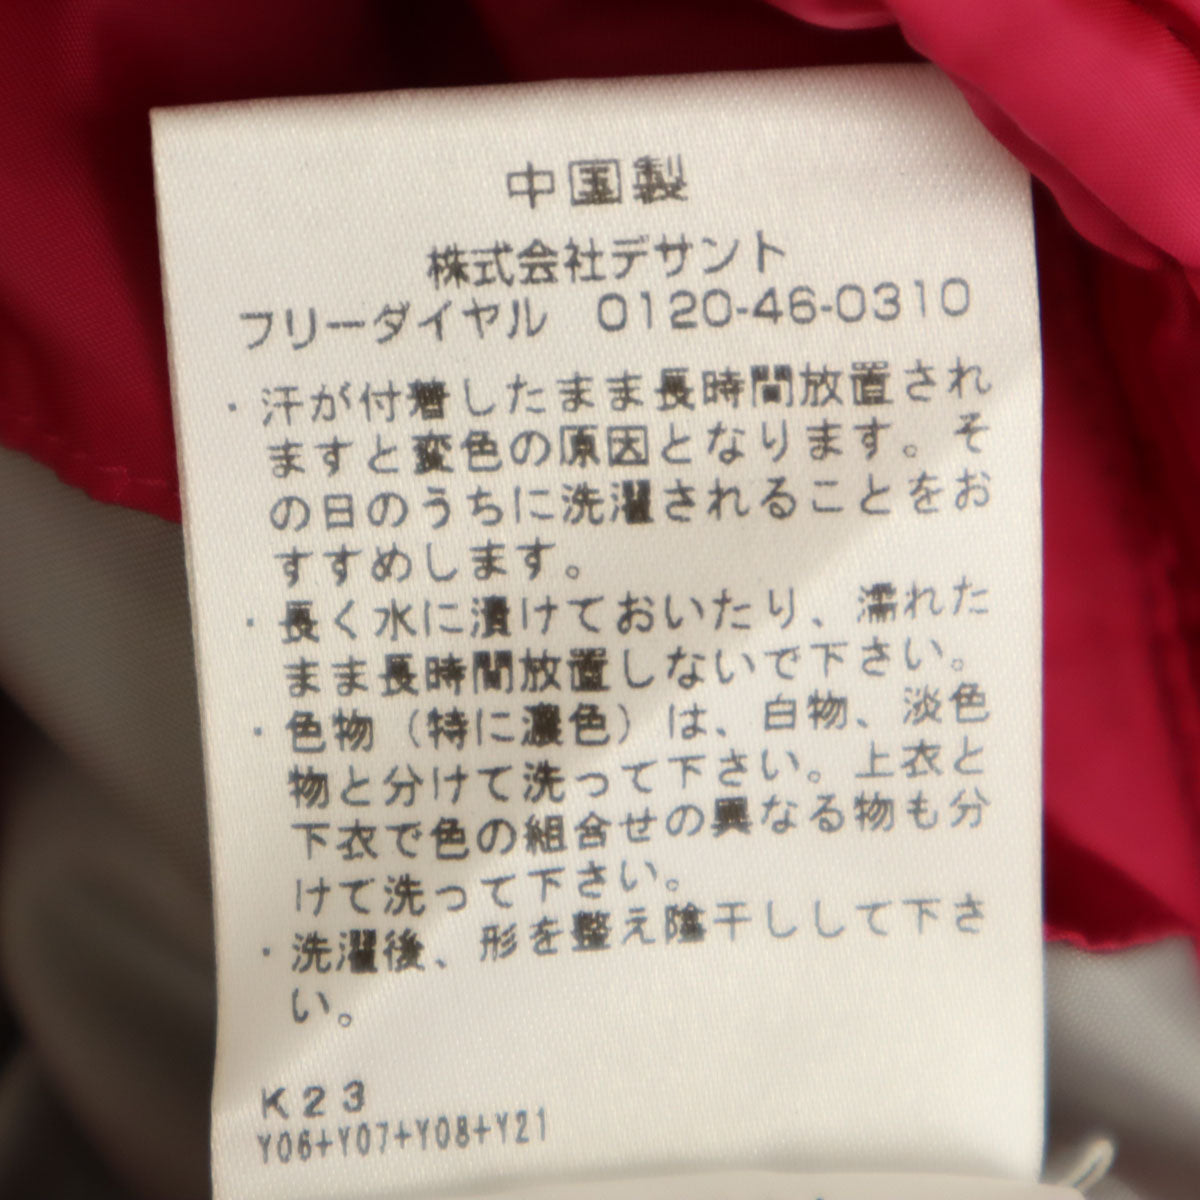 中国製
株式会社デサント
フリーダイヤル 0120-46-0310
・汗が付着したまま長時間放置され
ますと変色の原因となります。そ
の日のうちに洗濯されることをお
すすめします。
・長く水に漬けておいたり、濡れた
まま長時間放置しないで下さい。
・色物（特に濃色）は、白物、淡色
物と分けて洗って下さい。上衣と
下衣で色の組合せの異なる物も分
けて洗って下さい。
・洗濯後、形を整え陰干しして下さ
い。
K23
Y06+Y07+Y08+Y21